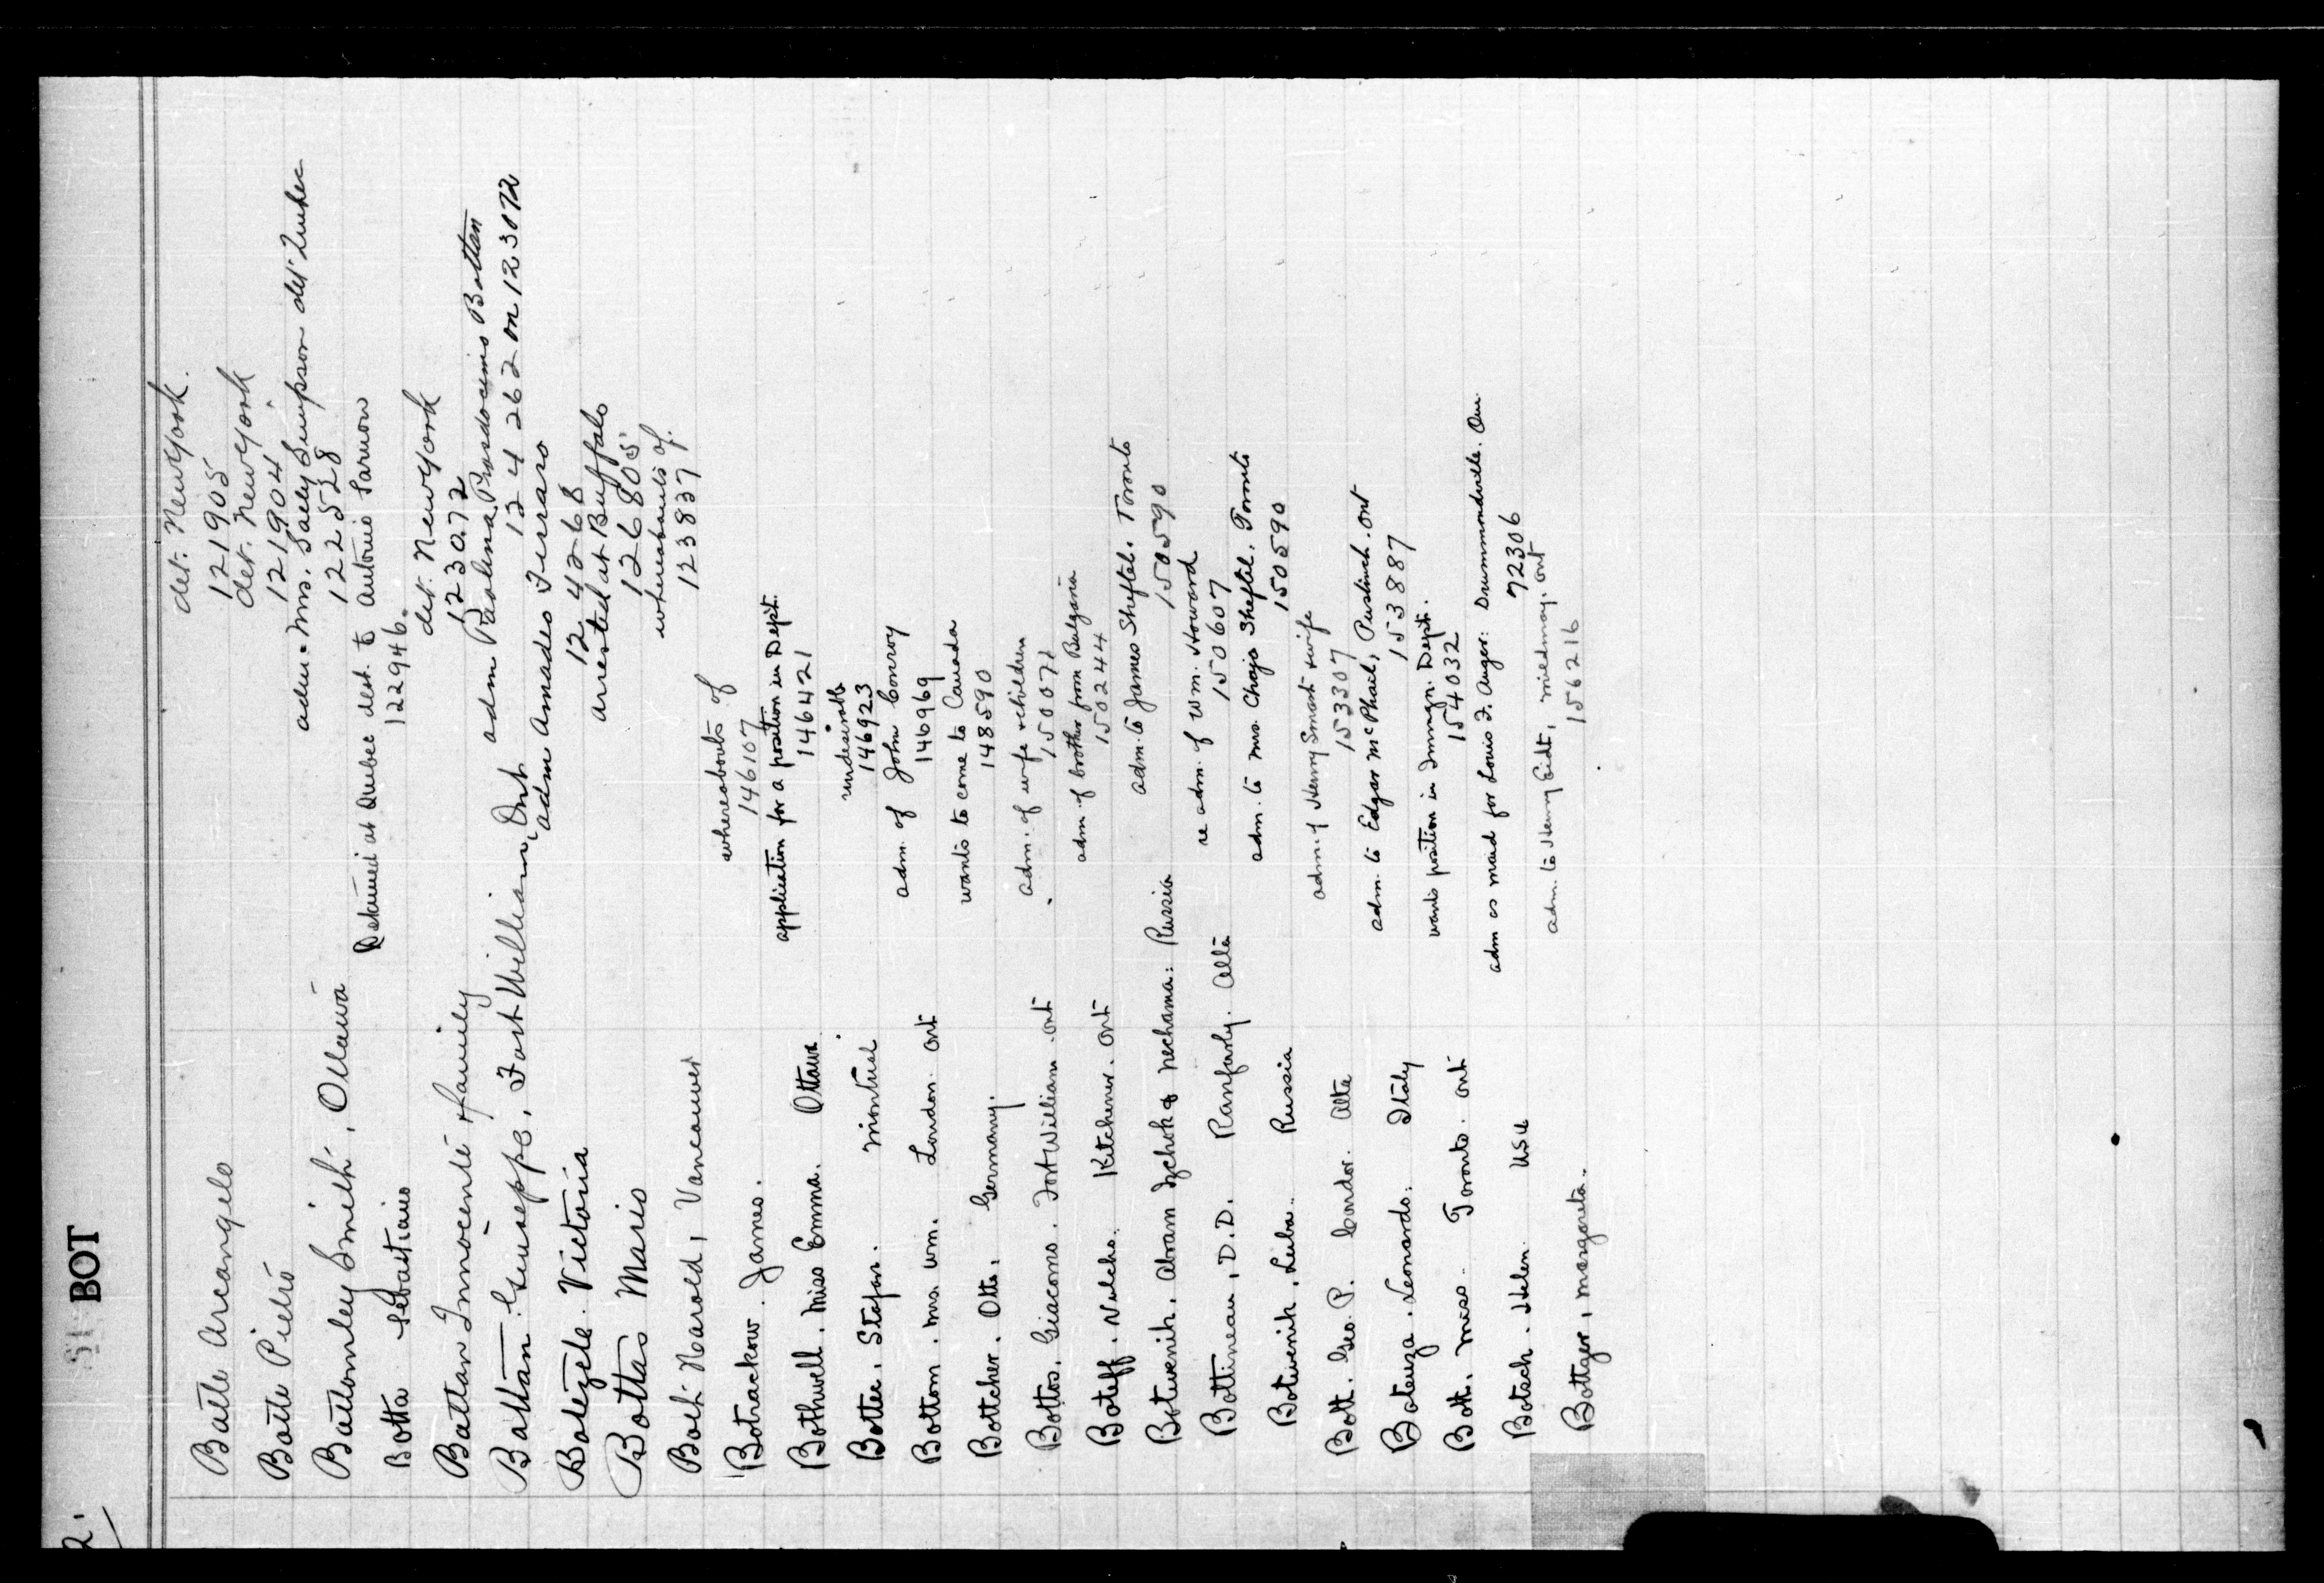 2.
BOT
Botte Arcangelo det. New York.
121905
Botte Pietro det. New York
121904
Bottomley Smith, Ottawa adm. Mrs. Sally Simpson det Quebec
122528
Botta Sebastiano Detained at Quebec dest. to Antonio
122946.
Bottan Innocente & family det. New York
123072
Bottan Giuseppe, Fort William, Ont adm Paolina Prosdocimo Bottan
124262 on 123072
Victoria adm Amadeo Ferraro
124268
Bottas Mario arrested at Buffalo
126805
Bolt Harold, Vancouver whereabouts of.
123837
Botrackow. James. whereabouts of
146107
Bothwell. Miss Emma. Ottawa application for a position in Dept.
146421
Botter. Stefan. Montreal undesirable
146923
Bottom. Mrs. Wm. London. Ont adm. of John Conroy
146969
Bottcher. Otto, Germany. wants to come to Canada
148590
Bottos. Giacomo. Fort William. Ont adm. of wife & children
150071
Boteff. Kitchener. Ont adm. of brother from Bulgaria
150244
Botwenik. Abram Izchok & Nechama: Russia adm. to James Sheftel. Toronto
150590
Bottineau, D.D. Ranfurly. Alta re adm. of Wm. Howard
150607
Botwenik, Luba. Russia adm. to Mrs. Chaja Sheftel. Toronto
150590
Bott. Geo. P. Condor. Alta adm. of Henry Smart & wife
153307
Boteuza. Leonardo. Italy adm. to Edgar McPhail, Puslinch. Ont
153887
Bott. Miss. Toronto. Ont wants position in Immign. Dept.
154032
Botsch. Helen. USA adm as maid for Louis F. Auger: Drummondville. Que.
72306
Bottger, Margareta. adm. to Henry Eidt, Mildmay. Ont
156216